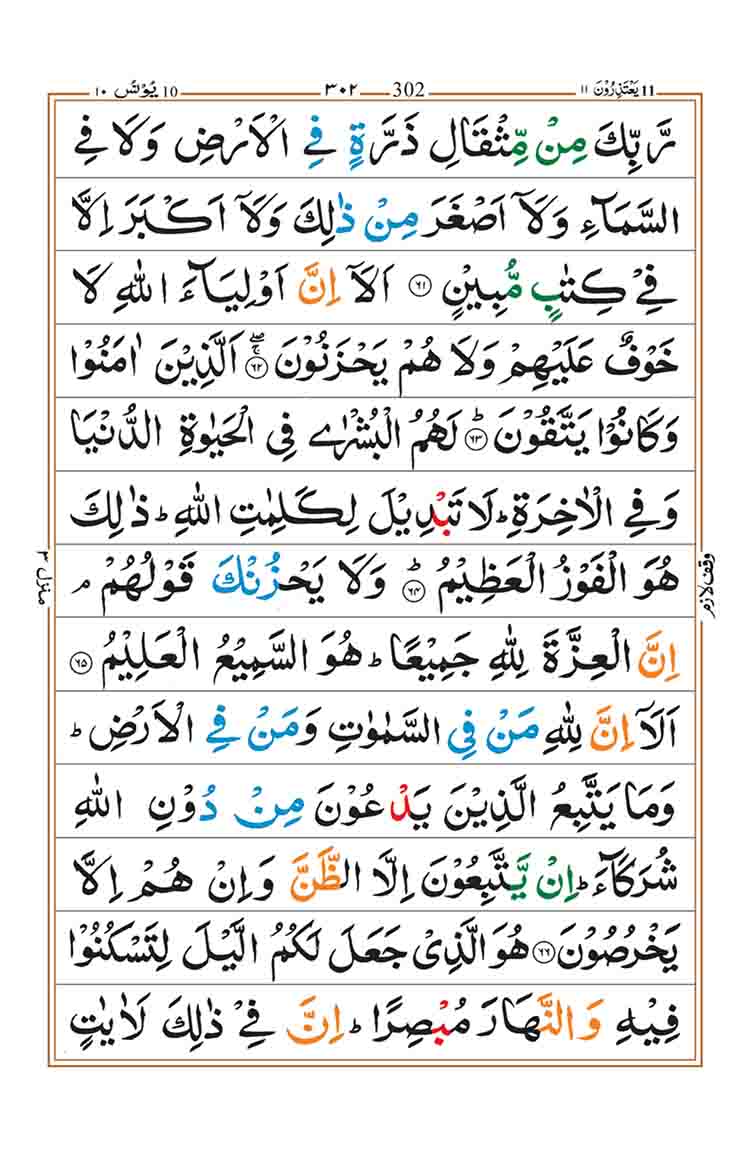 11 يَعْتَذِرُوْنَ ١١ 302 ٣٠٢ 10 يُوْنُس ١٠
رَّبِّكَ مِنْ مِّثْقَالِ ذَرَّةٍ فِي الْاَرْضِ وَلَا فِي
السَّمَآءِ وَلَآ اَصْغَرَ مِنْ ذٰلِكَ وَلَآ اَكْبَرَ اِلَّا
فِيْ كِتٰبٍ مُّبِيْنٍ ۝٦١ اَلَآ اِنَّ اَوْلِيَآءَ اللّٰهِ لَا
خَوْفٌ عَلَيْهِمْ وَلَا هُمْ يَحْزَنُوْنَ ۝٦٢ۖۚ اَلَّذِيْنَ اٰمَنُوْا
وَكَانُوْا يَتَّقُوْنَ ۝٦٣ؕ لَهُمُ الْبُشْرٰى فِي الْحَيٰوةِ الدُّنْيَا
وَفِي الْاٰخِرَةِ ؕ لَا تَبْدِيْلَ لِكَلِمٰتِ اللّٰهِ ؕ ذٰلِكَ
هُوَ الْفَوْزُ الْعَظِيْمُ ۝٦٤ؕ وَلَا يَحْزُنْكَ قَوْلُهُمْ ۘ
اِنَّ الْعِزَّةَ لِلّٰهِ جَمِيْعًا ؕ هُوَ السَّمِيْعُ الْعَلِيْمُ ۝٦٥
اَلَآ اِنَّ لِلّٰهِ مَنْ فِي السَّمٰوٰتِ وَمَنْ فِي الْاَرْضِ ؕ
وَمَا يَتَّبِعُ الَّذِيْنَ يَدْعُوْنَ مِنْ دُوْنِ اللّٰهِ
شُرَكَآءَ ؕ اِنْ يَّتَّبِعُوْنَ اِلَّا الظَّنَّ وَاِنْ هُمْ اِلَّا
يَخْرُصُوْنَ ۝٦٦ هُوَ الَّذِيْ جَعَلَ لَكُمُ الَّيْلَ لِتَسْكُنُوْا
فِيْهِ وَالنَّهَارَ مُبْصِرًا ؕ اِنَّ فِيْ ذٰلِكَ لَاٰيٰتٍ
وقف لازم
منزل ٣